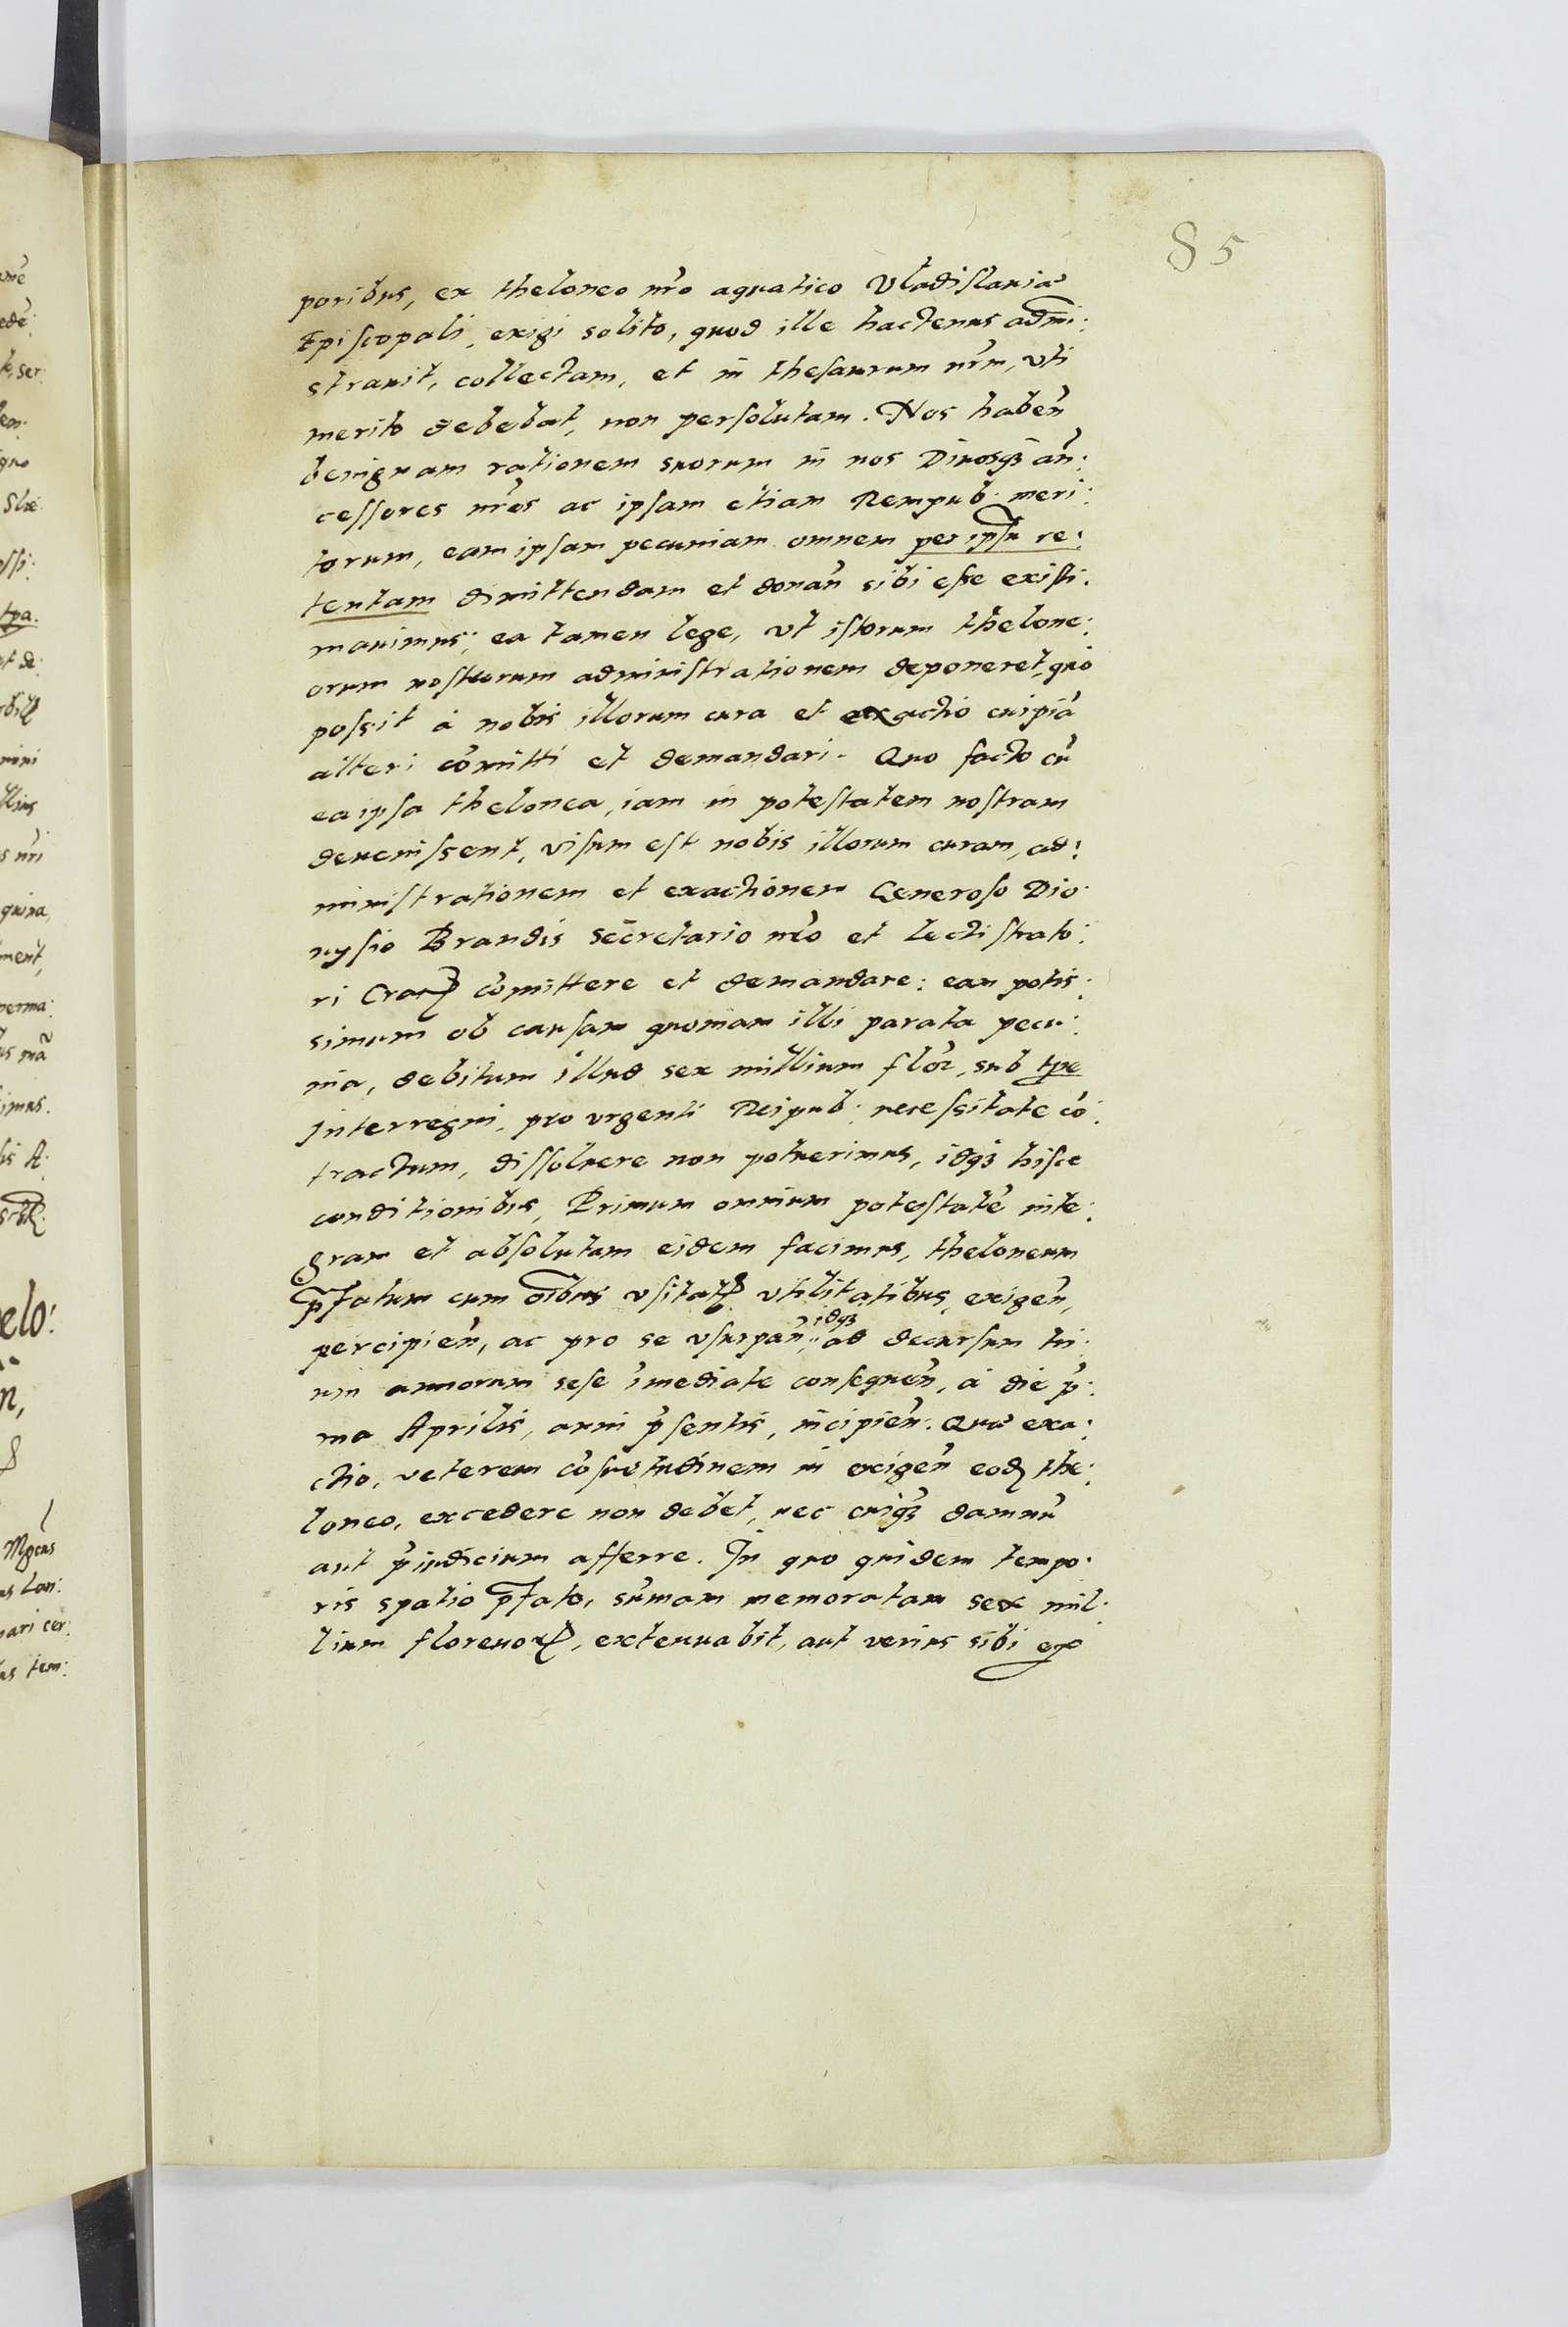 85
poribus, ex theloneo nro aquatico Vladislauiæ
Episcopali, exigi solito, quod ille hactenus admi:
strauit, collectam, et in thesaurum nrm, vti
merito debebat, non persolutam. Nos haben̄
benignam rationem suorum in nos Diuosqȝ an̄:
cessores nros ac ipsam etiam Rempub. meri:
torum, eam ipsam pecuniam omnem per ipsū re:
tentam dimittendam et donan̄ sibi esse existi:
mauimus; ea tamen lege, vt istorum thelone:
orum nostrorum administrationem deponeret, quo
possit à nobis illorum cura et exactio cuipiā
alteri cōmitti et demandari. Quo facto cū
ea ipsa thelonea, iam in potestatem nostram
deuenissent, visum est nobis illorum curam, ad:
ministrationem et exactionem Generoso Dio:
nysio Brandis secretario nro et lectistrato:
ri Crac̄ cōmittere et demandare: eam potis:
simum ob causam quoniam illi parata pecu:
nia, debitum illud sex millium flor, sub tpe
interregni, pro vrgenti Reipub: necessitate cō:
tractum, dissoluere non potuerimus, idqȝ hisce
conditionibus, Primum omnium potestatē inte:
gram et absolutam eidem facimus, theloneum
p̄fatum cum oībus vsitatꝭ vtilitatibus, exigen̄,
percipien̄, ac pro se vsurpan̄, idqȝ ad decursum tri:
um annorum sese īmediate consequen̄, à die p̄:
ma Aprilis, anni p̄sentis, incipien̄. Quæ exa:
ctio, veterem cōsuetudinem in exigen̄ eod̄ the:
loneo, excedere non debet, nec cuiqȝ damnū
aut p̄iudicium afferre. In quo quidem tempo:
ris spatio p̄fato, sūmam memoratam sex mil:
lium florenoꝝ, extenuabit, aut verius sibi ex